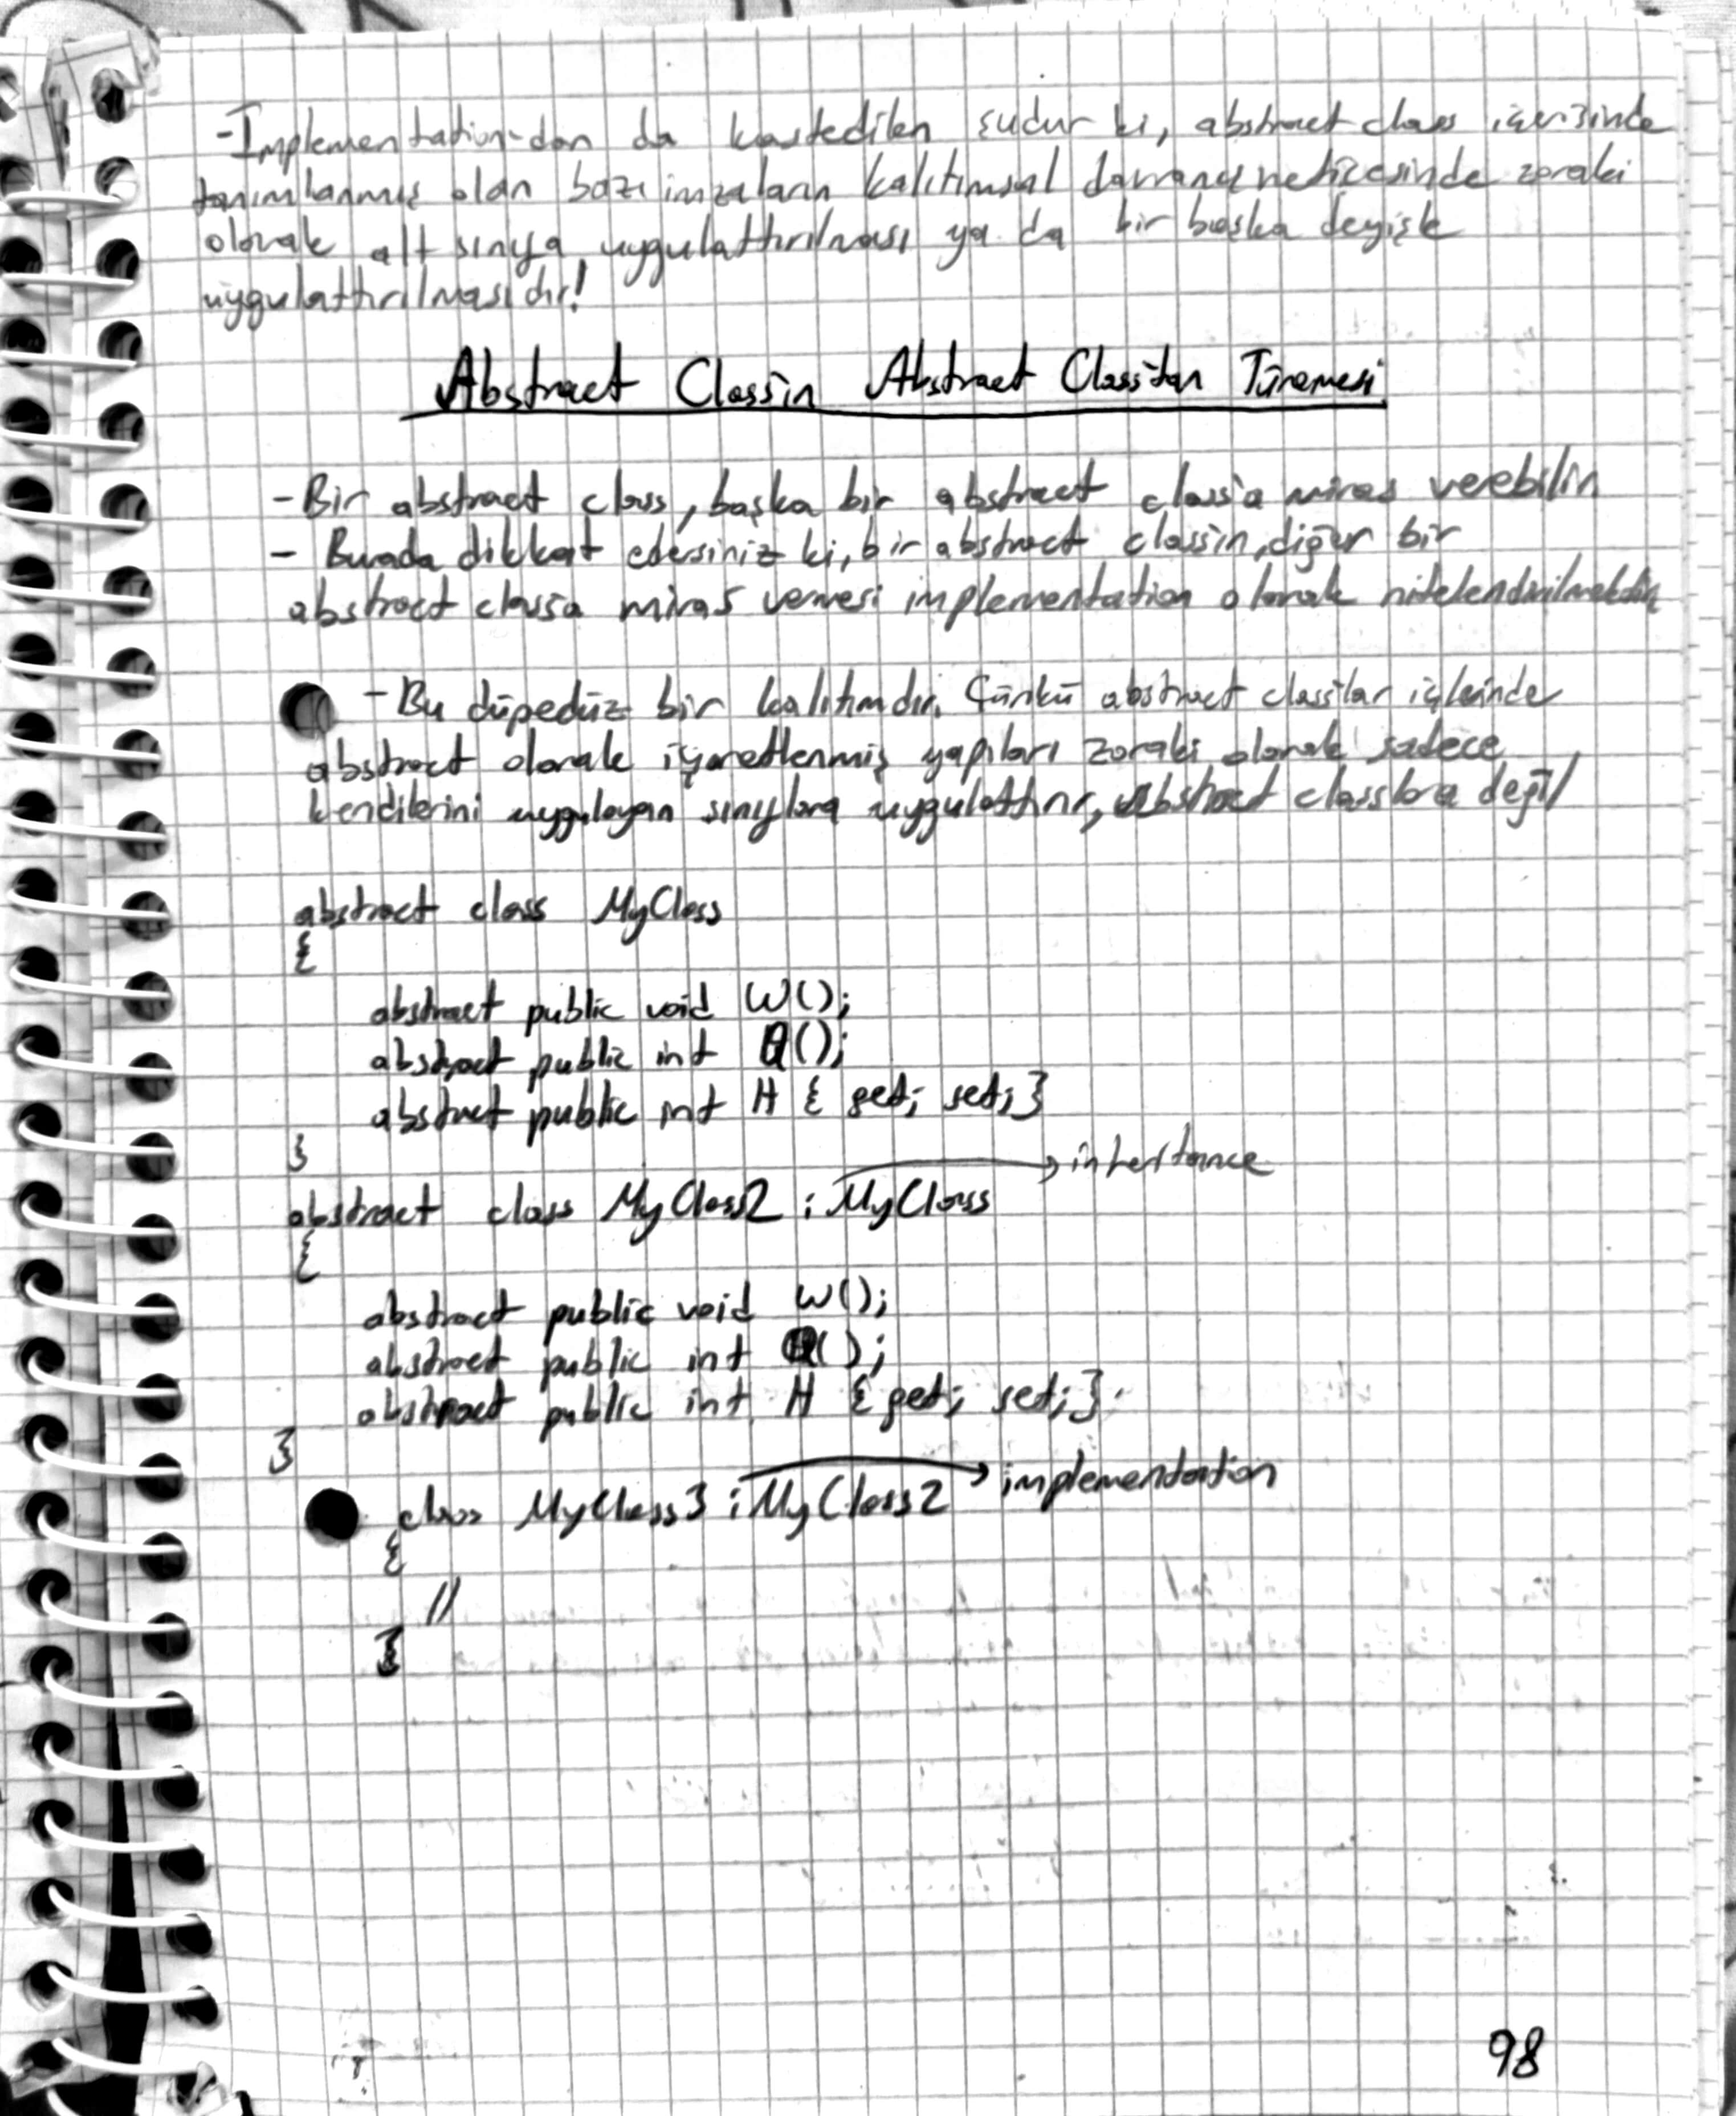 -Implementation-dan da kastedilen şudur ki, abstract class içerisinde
tanımlanmış olan bazı imzaların kalıtımsal davranış neticesinde zoraki
olarak alt sınıfa uygulattırılması ya da bir başka deyişle
uygulattırılmasıdır!
Abstract Class'ın Abstract Class'tan Türemesi
-Bir abstract class, başka bir abstract class'a miras verebilir
- Burada dikkat edersiniz ki, bir abstract class'ın, diğer bir
abstract class'a miras vermesi implementation olarak nitelendirilmektedir
-Bu düpedüz bir kalıtımdır. Çünkü abstract class'lar içlerinde
abstract olarak işaretlenmiş yapıları zoraki olarak sadece
kendilerini uygulayan sınıflara uygulattırır, abstract classlara değil
abstract class MyClass
{
abstract public void W();
abstract public int Q();
abstract public int H { get; set; }
}
inheritance
abstract class MyClass2 : MyClass
{
abstract public void W();
abstract public int Q();
abstract public int H { get; set; }
}
implementation
class MyClass3 : MyClass2
{
//
}
98